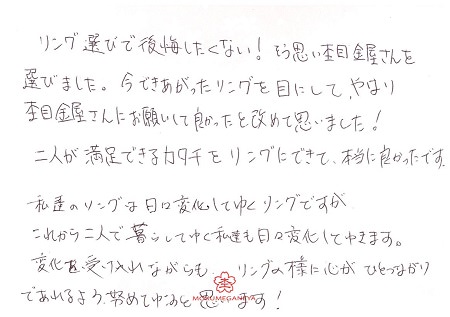 リング選びで後悔したくない！そう思い杢目金屋さんを
選びました。今できあがったリングを目にして、やはり
杢目金屋さんにお願いして良かったと改めて思いました！
二人が満足できるカタチをリングにできて、本当に良かったです。
私達のリングは日々変化してゆくリングですが
これから二人で暮らしてゆく私達も日々変化してゆきます。
変化を受け入れながらも、リングの様に心がひとつながり
であれるよう、努めてゆこうと思います！
MOKUMEGANEYA